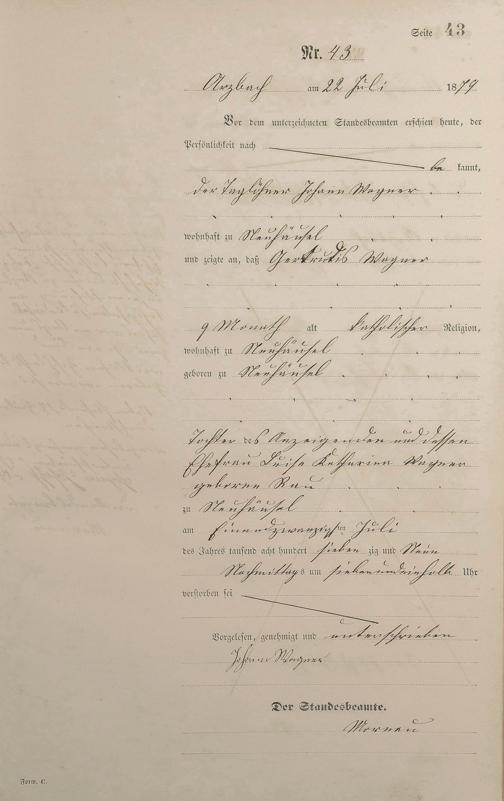 Seite 43
Nr. 43
Arzbach am 22 Juli 1879
Vor dem unterzeichneten Standesbeamten erschien heute, der
Persönlichkeit nach
be kannt,
der Taglöhner Johann Wagner
wohnhaft zu Neuhäusel
und zeigte an, daß Gertrudis Wagner
9 Monath alt katholischer Religion,
wohnhaft zu Neuhäusel
geboren zu Neuhäusel
Tochter des Anzeigenden und dessen
Ehefrau Luise Katharina Wagner
geborene Rau
zu Neuhäusel
am Einundzwanzigsten Juli
des Jahres tausend acht hundert sieben zig und Neun
Nachmittags um siebenundeinhalb Uhr
verstorben sei
Vorgelesen, genehmigt und unterschrieben
Johann Wagner
Der Standesbeamte.
Form. C.